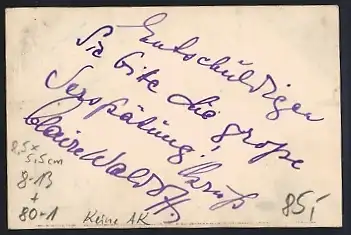 Entschuldigen
Sie bitte die große
Verspätung. Gruß
Claire Waldoff
8,5 x
5,5cm
8-13
+
80-1
Keine AK
85,-